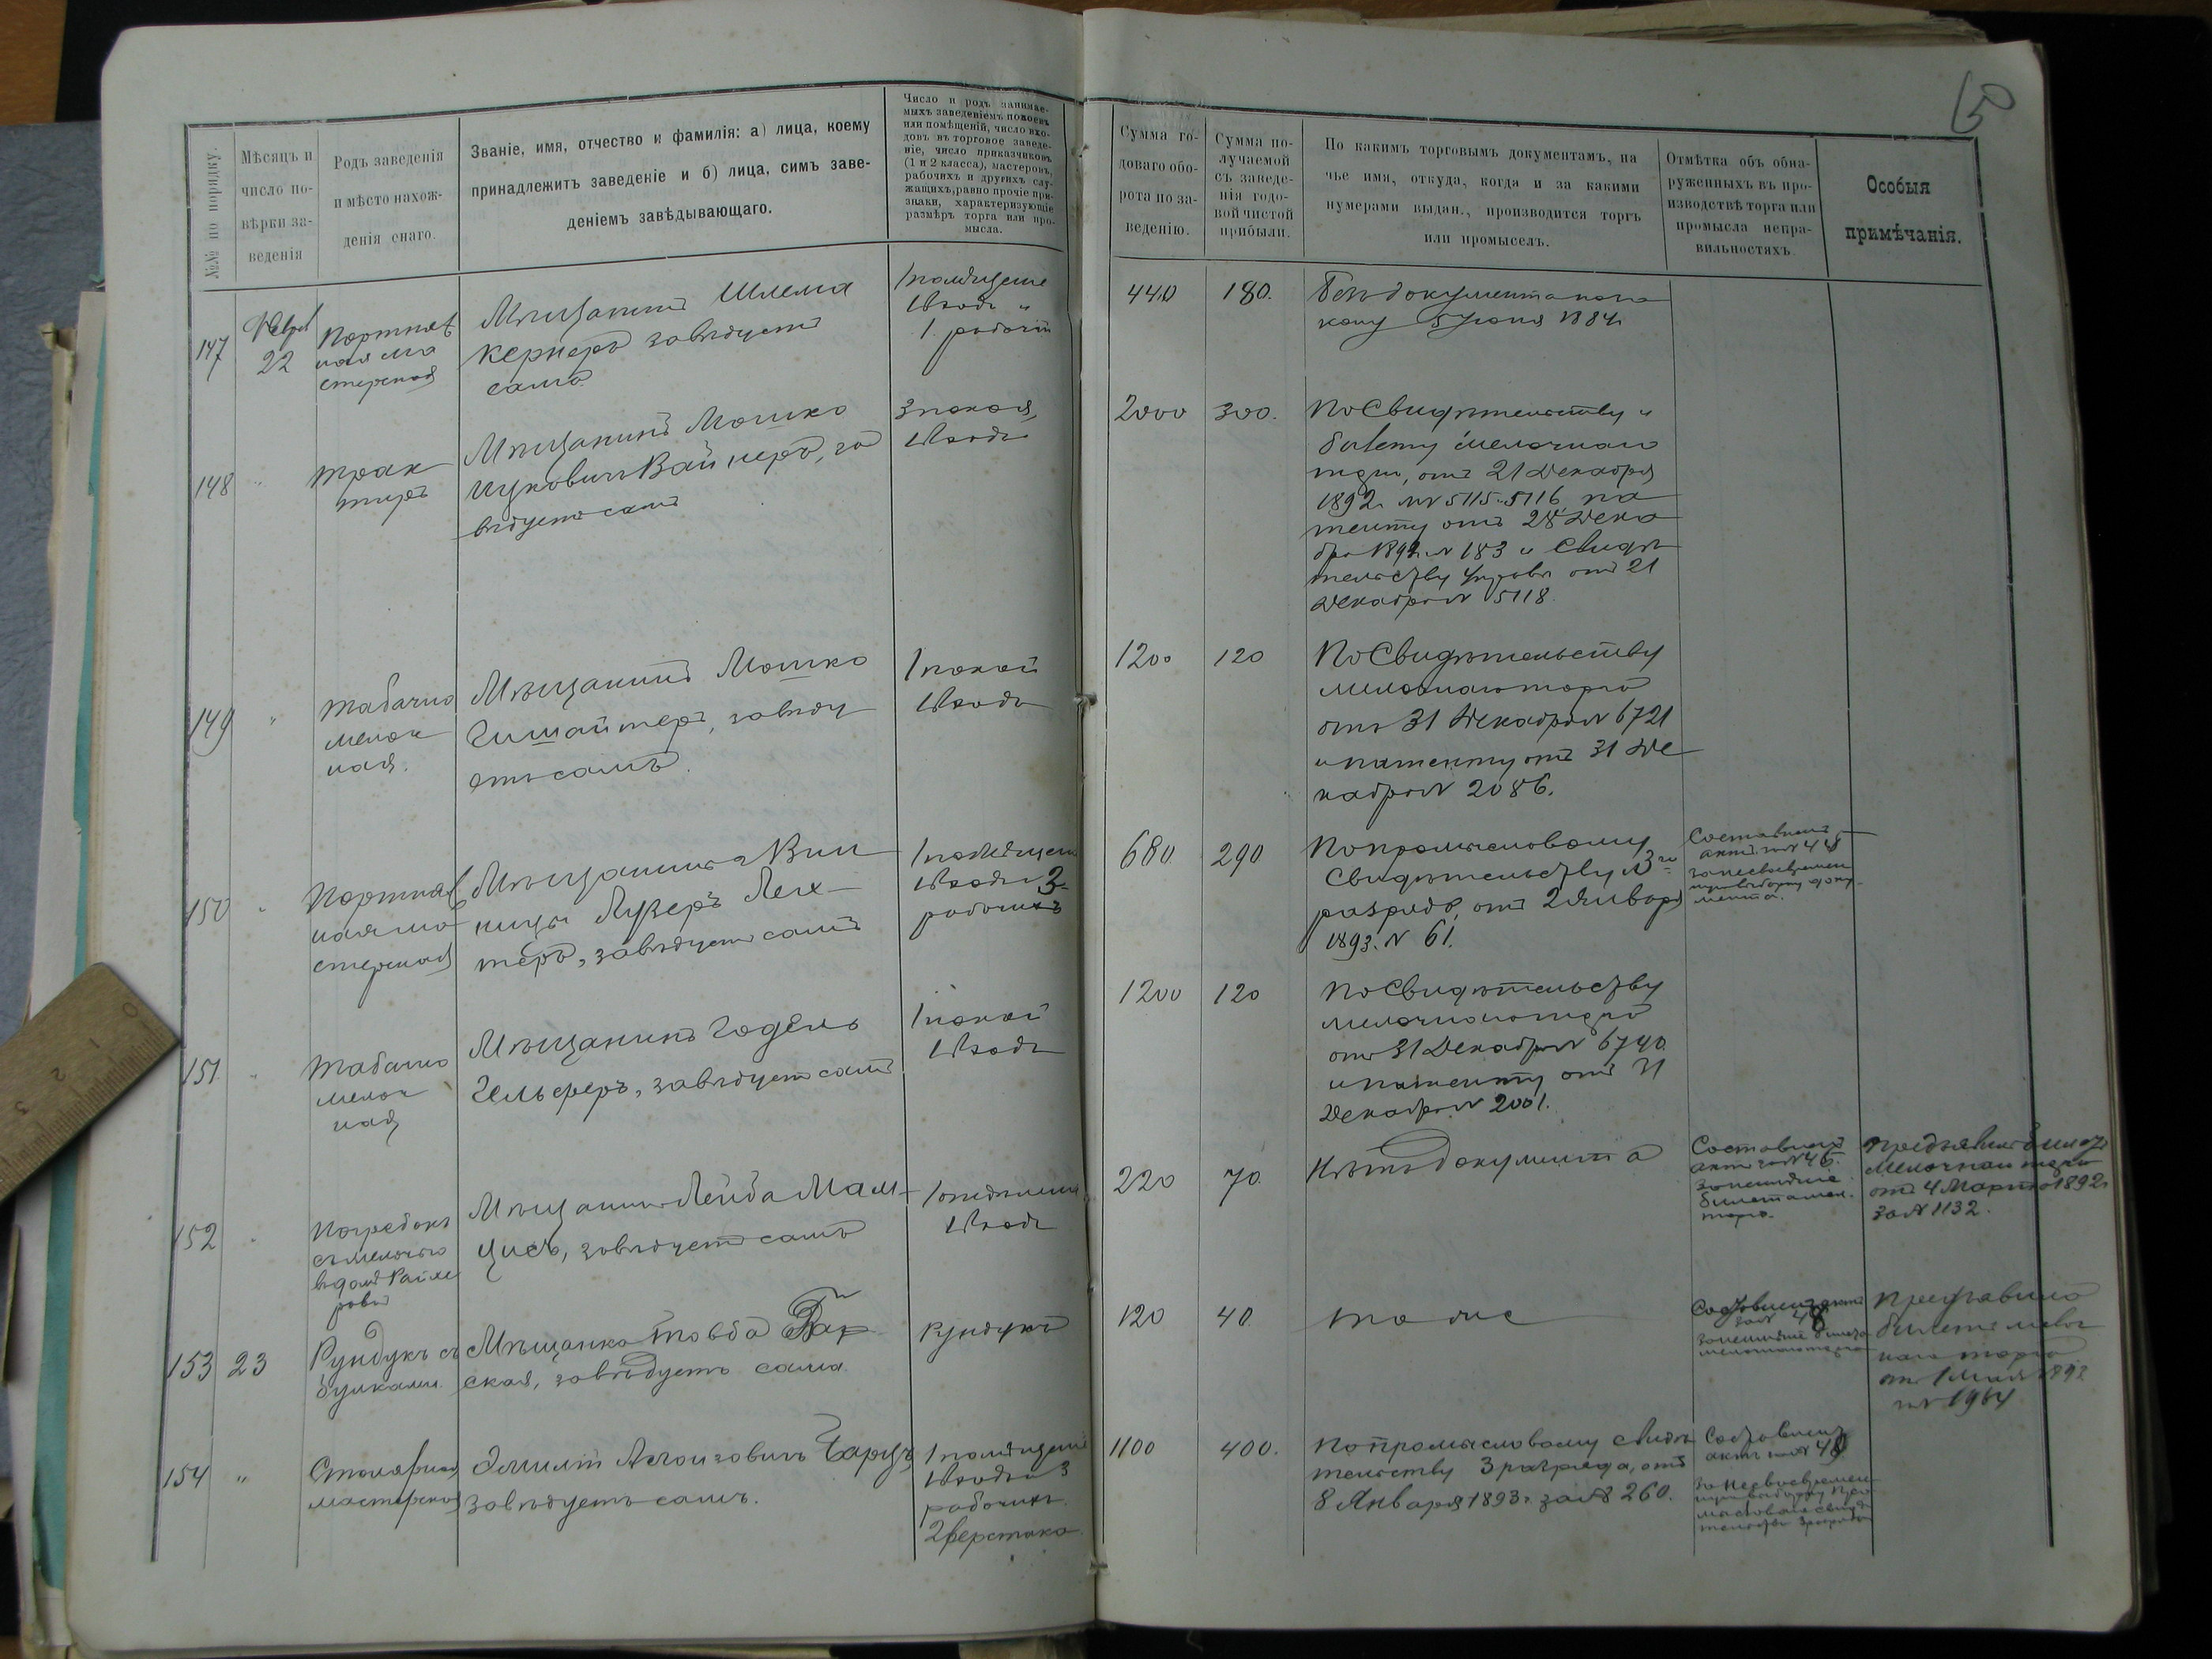 50
№№ по порядку.
Мѣсяцъ и
число по-
вѣрки за-
веденія
Родъ заведенія
и мѣсто нахож-
денія онаго.
Званіе, имя, отчество и фамилія: а) лица, коему
принадлежитъ заведеніе и б) лица, симъ заве-
деніемъ завѣдывающаго.
Число и родъ занимае-
мыхъ заведеніемъ покоевъ
или помѣщеній, число вхо-
довъ въ торговое заведе-
ніе, число приказчиковъ
(1 и 2 класса), мастеровъ,
рабочихъ и другихъ слу-
жащихъ, равно прочіе при-
знаки, характеризующіе
размѣръ торга или про-
мысла.
Сумма го-
доваго обо-
рота по за-
веденію.
Сумма по-
лучаемой
съ заведе-
нія годо-
вой чистой
прибыли.
По какимъ торговымъ документамъ, на
чье имя, откуда, когда и за какими
нумерами выдан., производится торгъ
или промыселъ.
Отмѣтка объ обна-
руженныхъ въ про-
изводствѣ торга или
промысла непра-
вильностяхъ.
Особыя
примѣчанія.
147
22
Портнов
ная ма
стерская
Мѣщанинъ Шлема
Кернеръ завѣдуетъ
самъ
1 помѣщеніе
1 входъ и
1 рабочій
440
180.
Безъ документа по за
кону 5 Іюня 1884 г.
148
"
Трак
тиръ
Мѣщанинъ Мошко
Ицковичъ Вайнеръ, за
вѣдуетъ самъ
3 покоя,
1 входъ
2000
300.
По Свидѣтельству и
билету мелочнаго
торга, отъ 21 Декабря
1892 г. №№ 5115 и 5116, па
тенту отъ 28 Дека
бря 1892 г. № 183 и Свидѣ
тельству Управы отъ 21
Декабря № 5118.
149
"
Табачно
мелоч
ная.
Мѣщанинъ Мошко
завѣду
етъ самъ.
1 покой
1 входъ
1200
120
По Свидѣтельству
мелочнаго торга
отъ 31 Декабря № 6721
и патенту отъ 31 Де
кабря № 2086.
150
"
Портнов
ная ма
стерская
Мѣщанинъ Вин
ницы Лузеръ Лех-
теръ, завѣдуетъ самъ
1 помѣщеніе
1 входъ и 3
рабочихъ
680
290
По промысловому
Свидѣтельству 3го
разряда, отъ 2 Января
1893 г. № 61.
Составленъ
актъ за № 44
за несвоевремен
ную выборку доку-
мента.
151
"
Табачно
мелоч
ная
Мѣщанинъ Годель
Гельферъ, завѣдуетъ самъ
1 покой
1 входъ
1200
120
По Свидѣтельству
мелочнаго торга
отъ 31 Декабря № 6740
и патенту отъ 31
Декабря № 2001.
152
"
Погребокъ
съ мелочью
въ домѣ
Мѣщанинъ Лейба Мам-
цисъ, завѣдуетъ самъ
1 входъ
220
70.
Нѣтъ документа
Составленъ
актъ за № 46.
за неимѣніе
билета мел.
торга.
Предъявилъ билетъ
мелочнаго торга
отъ 4 Марта 1892 г.
за № 1132.
153
23
Рундукъ съ
булками.
Мѣщанка Товба Бар
ская, завѣдуетъ сама.
Рундукъ
120
40
то же
Составленъ актъ
за № 48
за неимѣніе билета
мелочнаго торга
Представила
билетъ мелоч
наго торга
154
"
Столярная
мастерская
Эмилій завѣдуетъ самъ.
1 помѣщеніе
1 входъ и 3
рабочихъ.
2 верстака
1100
400.
По промысловому свидѣ
тельству 3 разряда, отъ
8 Января 1893 г. за № 260.
Составленъ
актъ за №
за несвоевремен
ную выборку про
мысловаго свидѣ
тельства 3 разряда